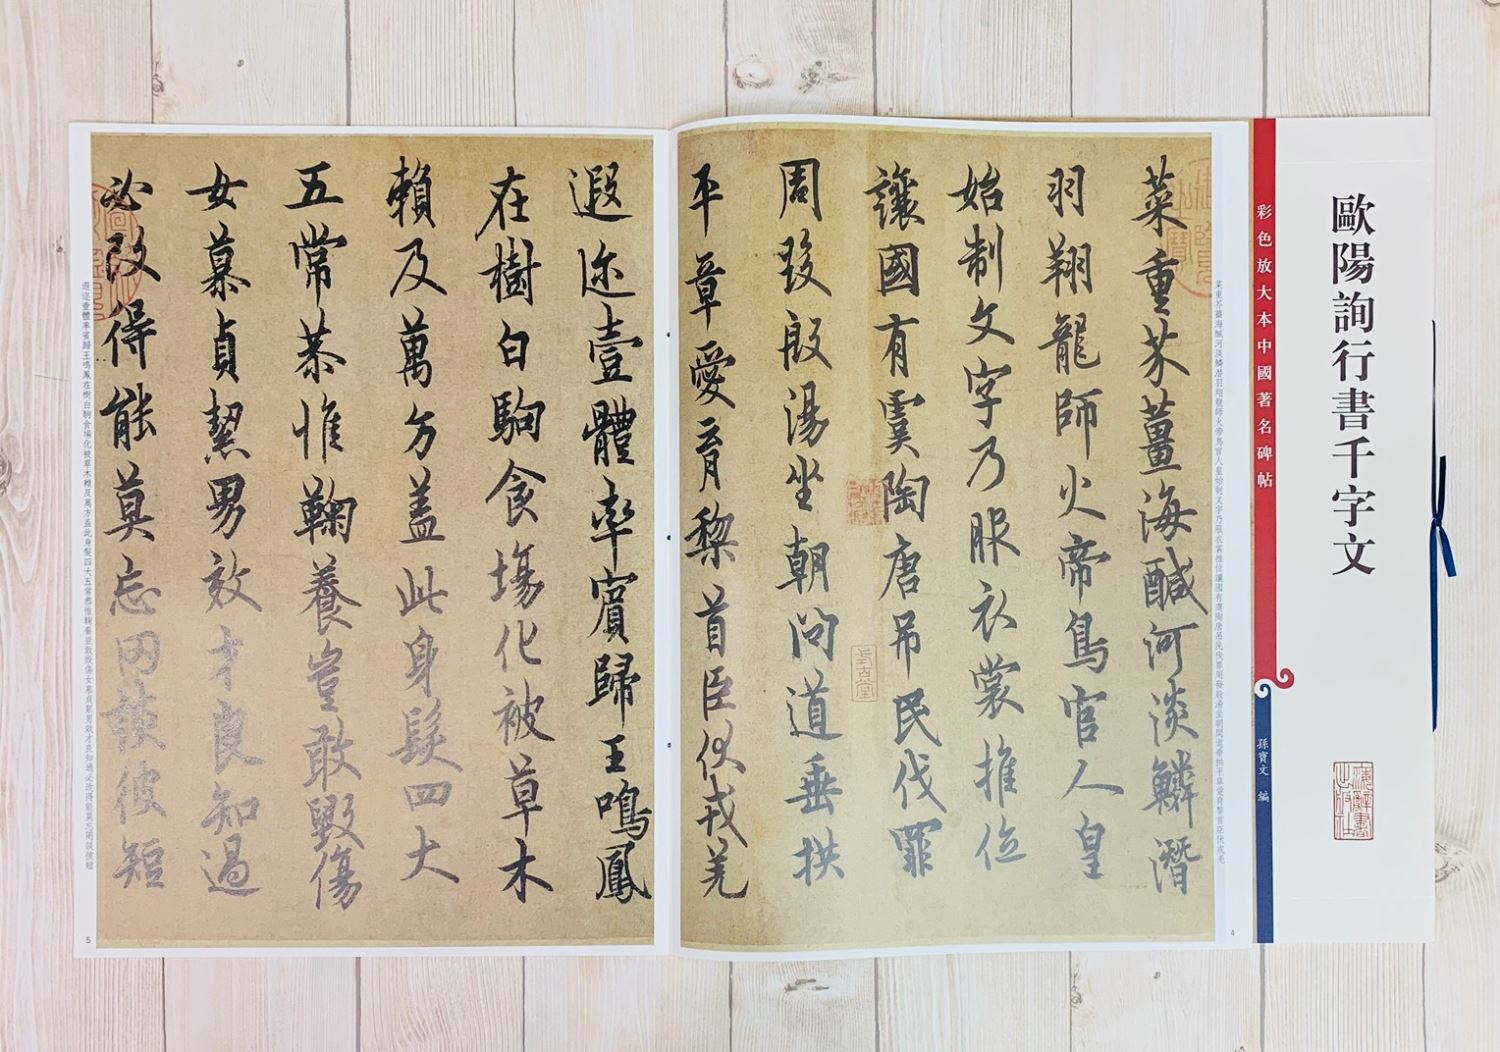 歐陽詢行書千字文
彩色放大本中國著名碑帖
孫寶文 編
菜重芥薑海鹹河淡鱗潛羽翔龍師火帝鳥官人皇始制文字乃服衣裳推位讓國有虞陶唐吊民伐罪周發殷湯坐朝問道垂拱平章愛育黎首臣伏戎羌
菜重芥薑海鹹河淡鱗潛
羽翔龍師火帝鳥官人皇
始制文字乃服衣裳推位
讓國有虞陶唐吊民伐罪
周發殷湯坐朝問道垂拱
平章愛育黎首臣伏戎羌
4
遐迩壹體率賓歸王鳴鳳
在樹白駒食場化被草木
賴及萬方蓋此身髮四大
五常恭惟鞠養豈敢毀傷
女慕貞絜男效才良知過
必改得能莫忘罔談彼短
遐迩壹體率賓歸王鳴鳳在樹白駒食場化被草木賴及萬方蓋此身髮四大五常恭惟鞠養豈敢毀傷女慕貞絜男效才良知過必改得能莫忘罔談彼短
5